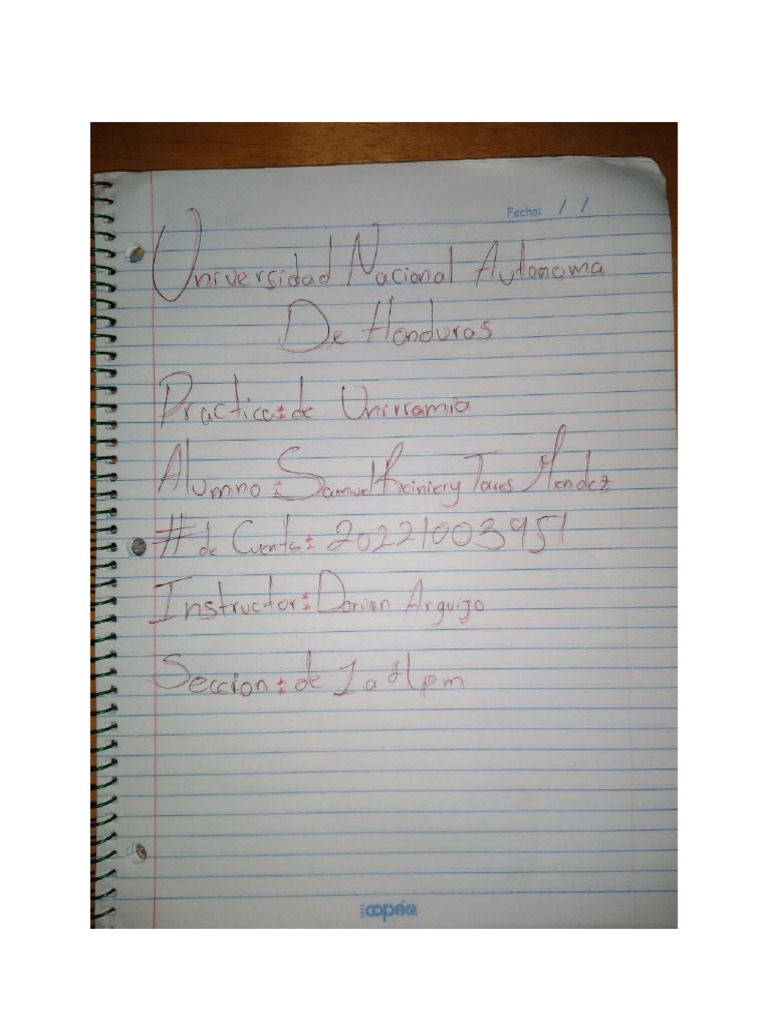 Fecha: / /
Universidad Nacional Autonoma
De Honduras
Practica: de Unirramia
Alumno: Samuel Reiniery Mendez
# de Cuenta: 20221003951
Instructor: Dorian Arguijo
Seccion: de 1 a pm
copán